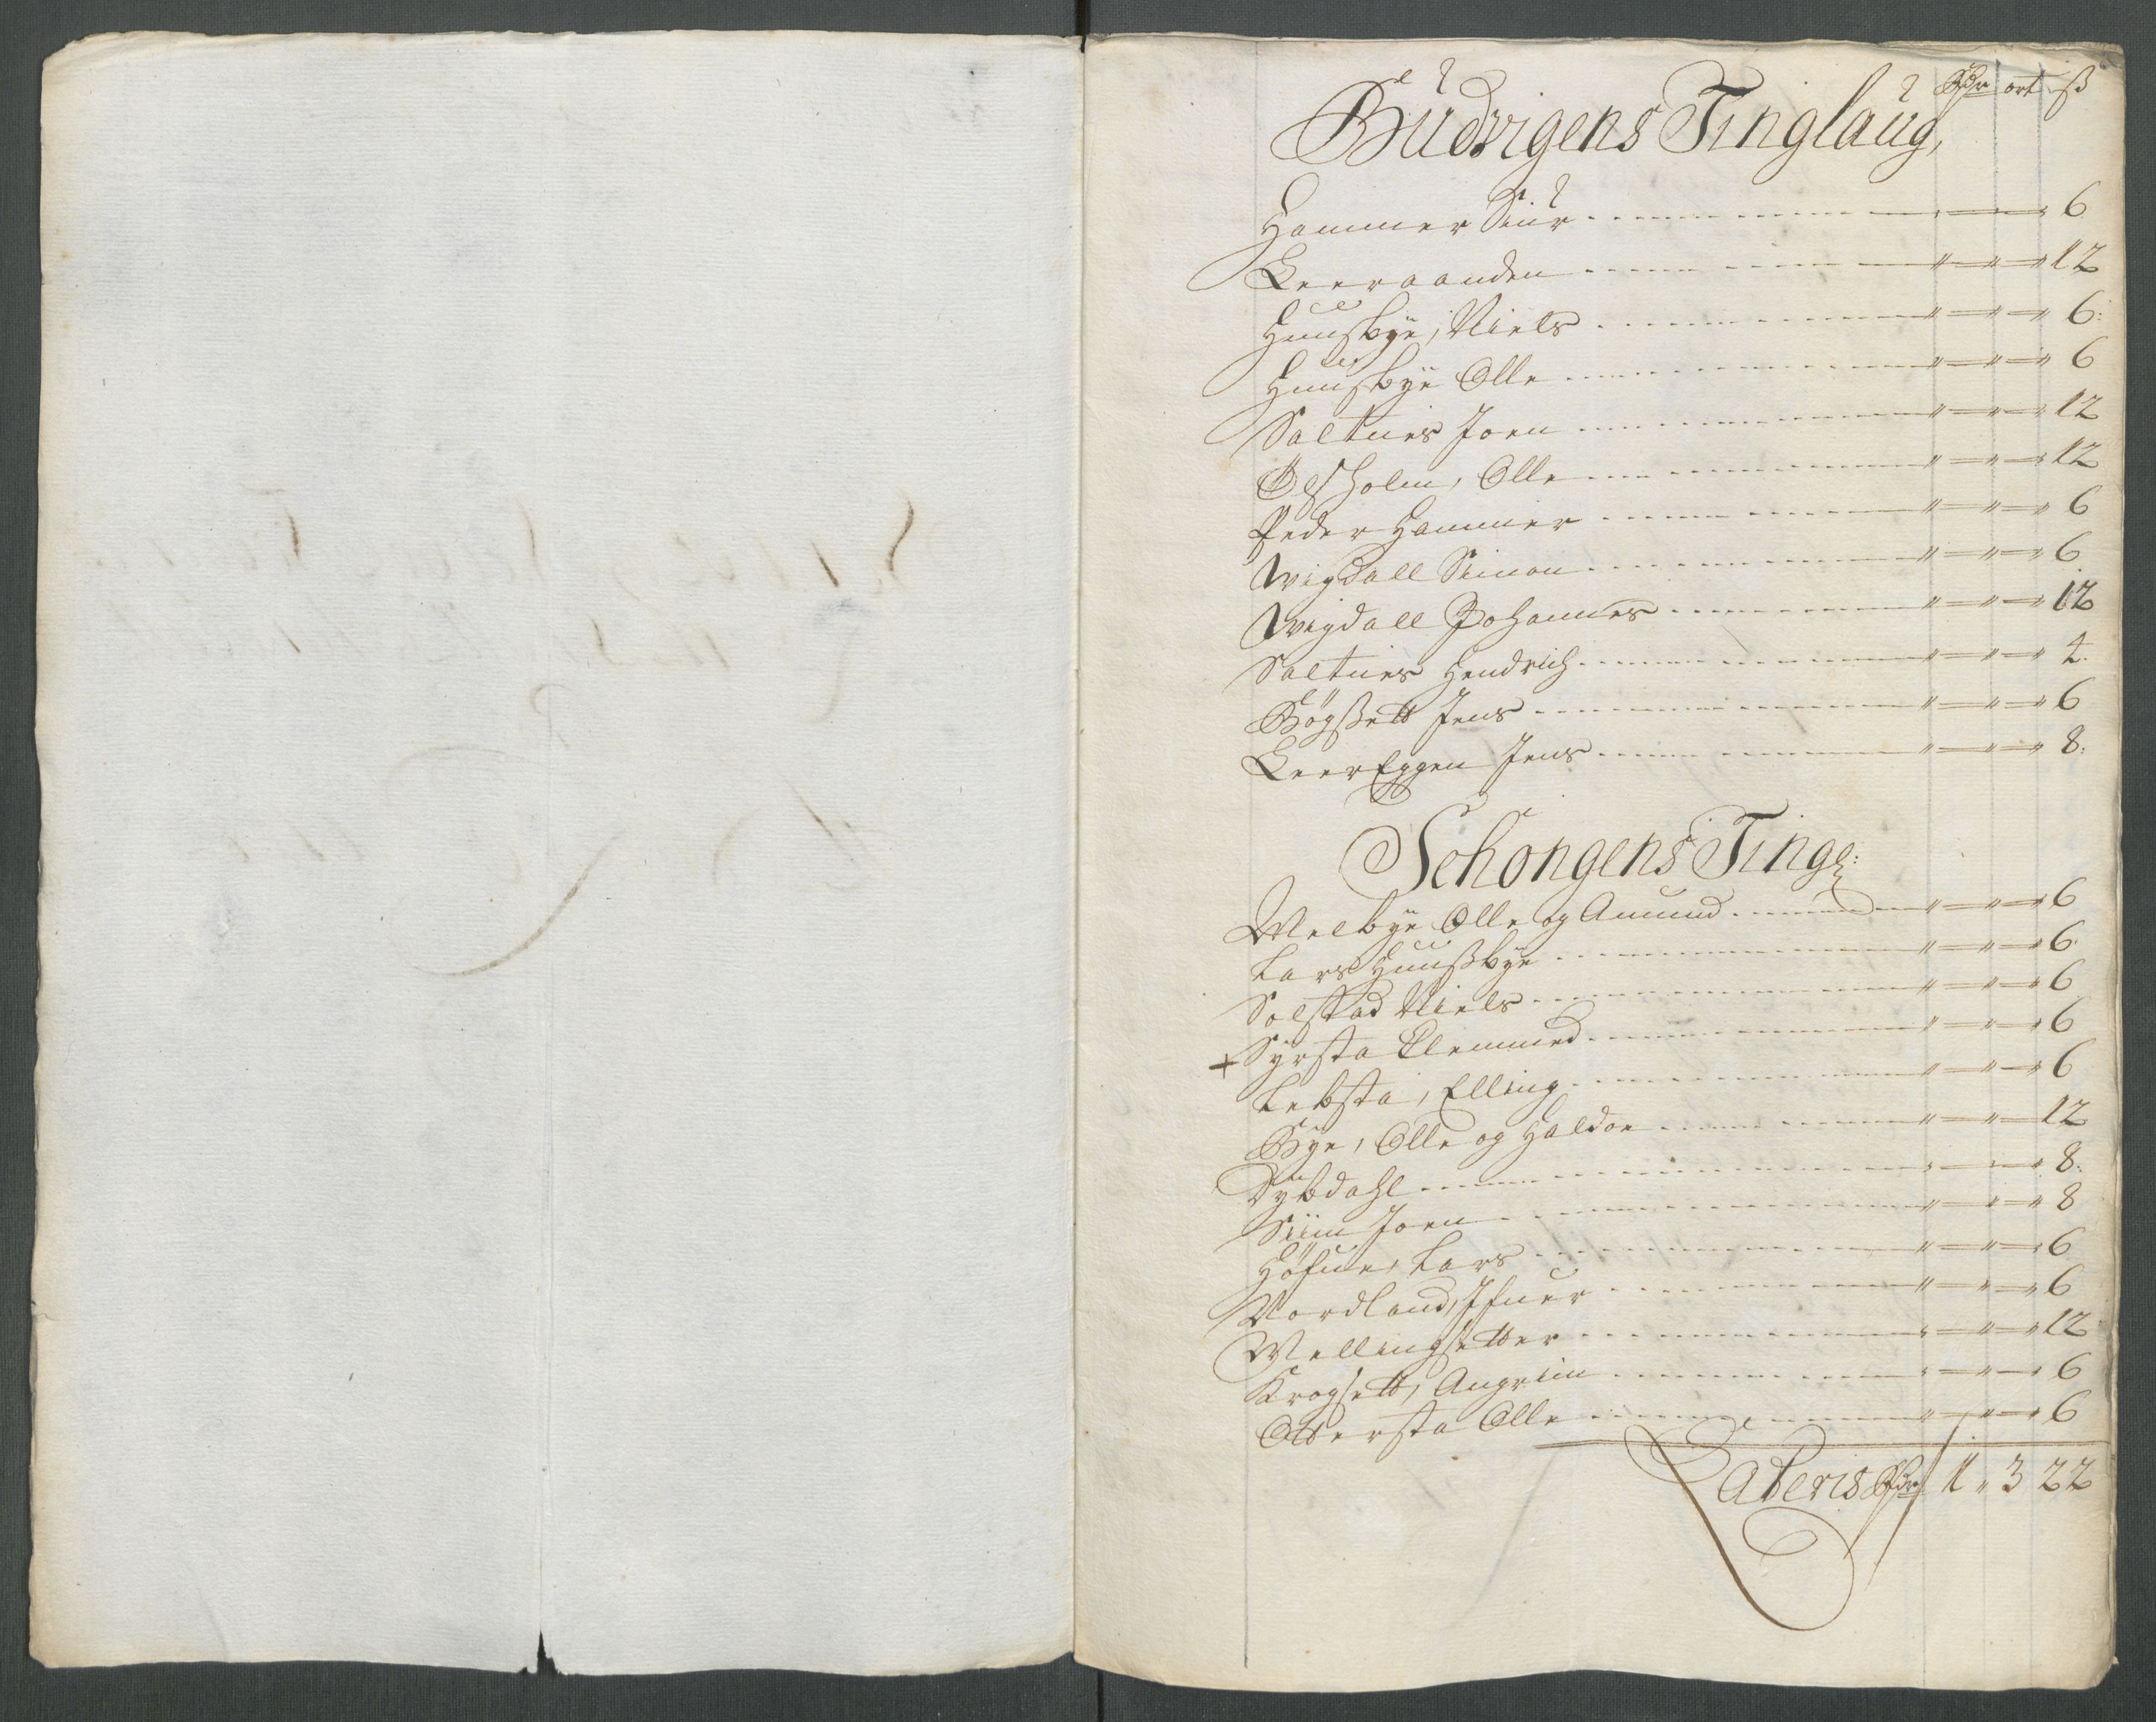 Rdr ort ß
Budvigens Tinglaug,
Hammer Siur - - - 6
Leeraanden - - - " " " 12
Huusbye, Niels - - - " " " 6:
Huusbye Olle - - - " " " 6
Saltnes Joen - - - " " " 12
Øesholm, Olle - - - " " " 12
Peder Hammer - - - " " " 6
Wigdall Simon - - - " " " 6
Wigdall Johannes - - - " " " 12
Saltnes Hendrich - - - " " " 4.
Bøgßett Jens - - - " " " 6
LeerEggen Jens - - - " " " 8:
Schongens Tinge:
Melbye Olle og Amund - - - " " " 6
Lars Huusbye - - - " " " 6
Solstad Niels - - - " " " 6
+ Syrsta Clemmed - - - " " " 6
Lebsta, Elling - - - " " " 6
Bye, Olle og Haldor - - - " " " 12
Dybdahl - - - " " " 8:
Siim Joen - - - " " " 8
Høfne, Lars - - - " " " 6
Nordland, Ifuer - - - " " " 6
Mellingsetter - - - " " " 12
Krogsett, Angrim - - - " " " 6
Ottersta Olle - - - " " " 6
Lateris Rdr 1 " 3 22